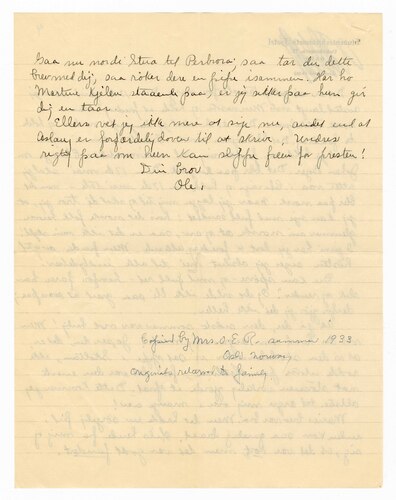 Gaa nu norde Stua til Perbroia, saa tar du dette
brev med dij, saa röker dere en pipe isammen. Har ho
Martine kjilen staaende paa, er jij sikker paa hun gir
dij en taar.
Ellers vet jij ikke mere at sije nu, andet end at
Aslaug er forfærdelij doven til at skrive, undres
rigtij paa om hun kan slippe frem for presten!
Din bror
Ole.
Copied by Mrs. O. E. R. summer 1933
Oslo Norway
originals returned to family